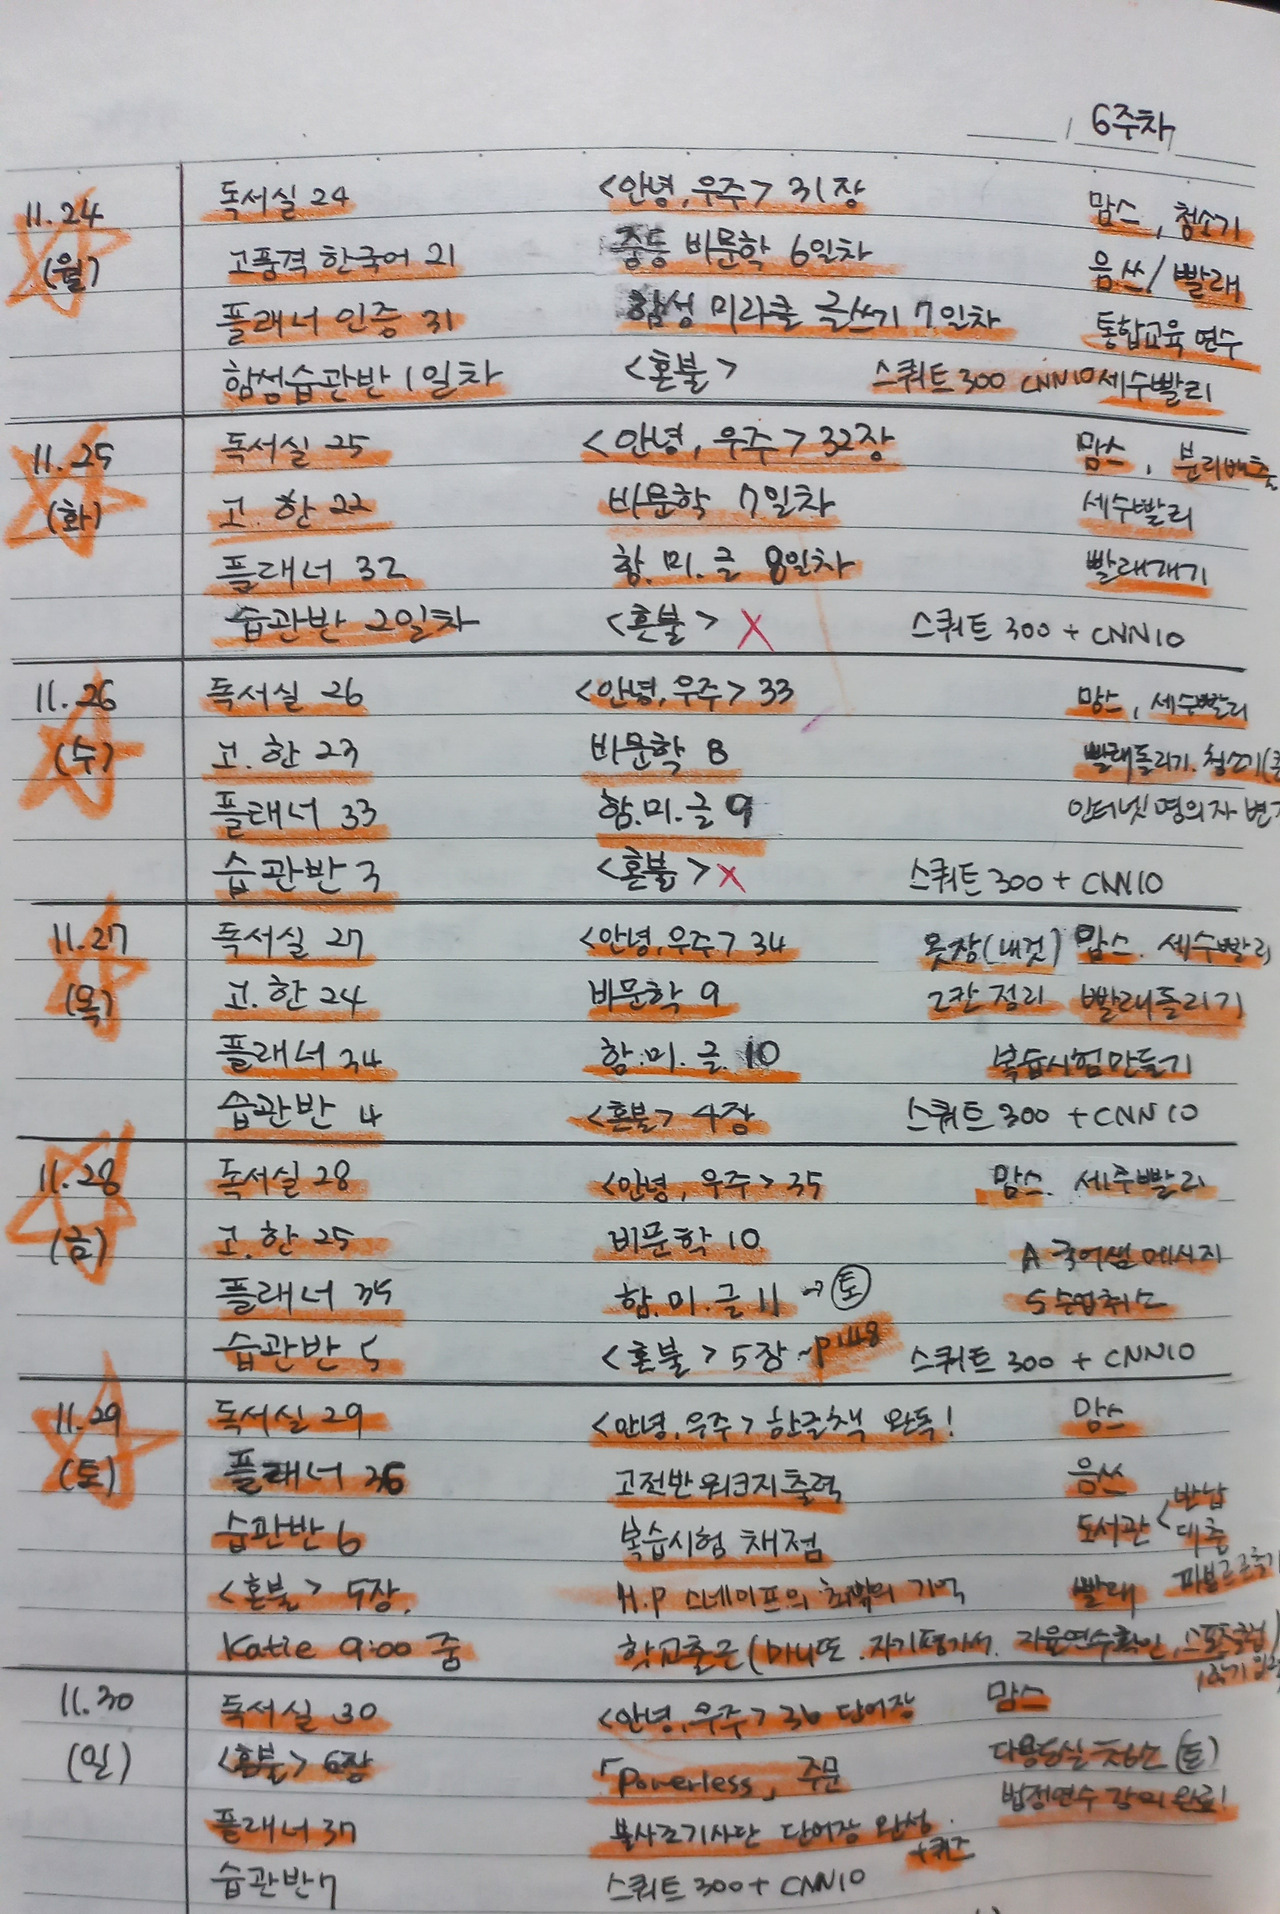 6주차
11.24 독서실 24 <안녕, 우주> 31장 맘스, 청소기
(월) 고풍격 한국어 21 중등 비문학 6일차 음쓰/빨래
플래너 인증 31 함성 미라클 글쓰기 7일차 통합교육 연수
함성습관반 1일차 <혼불> 스쿼트 300 CNN10 세수빨리
11.25 독서실 25 <안녕, 우주> 32장 맘스, 분리배출
(화) 고.한 22 비문학 7일차 세수빨리
플래너 32 함.미.글 8일차 빨래개기
습관반 2일차 <혼불> X 스쿼트 300 + CNN10
11.26 독서실 26 <안녕, 우주> 33 맘스, 세수빨리
(수) 고.한 23 비문학 8 빨래돌리기. 청소기
플래너 33 함.미.글 9 인터넷 명의자
습관반 3 <혼불> X 스쿼트 300 + CNN10
11.27 독서실 27 <안녕, 우주> 34 옷장(내것) 맘스. 세수빨리
(목) 고.한 24 비문학 9 2칸 정리 빨래돌리기
플래너 34 함.미.글. 10 복습시험만들기
습관반 4 <혼불> 4장 스쿼트 300 + CNN10
11.28 독서실 28 <안녕, 우주> 35 맘스. 세수빨리
(금) 고.한 25 비문학 10 A 국어쌤 메시지
플래너 35 함.미.글 11 → 토 S 수업취소
습관반 5 <혼불> 5장 ~p148 스쿼트 300 + CNN10
11.29 독서실 29 <안녕, 우주> 한글책 완독! 맘스
(토) 플래너 36 고전반 워크지출력 음쓰
습관반 6 복습시험 채점 도서관 < 반납 대출
<혼불> 5장. H.P 스네이프의 최악의 기억 빨래
Katie 9:00 줌 학교출근(마니또. 자기평가서. 자율연수확인,
11.30 독서실 30 <안녕, 우주> 36 단어장 맘스
(일) <혼불> 6장 「Powerless」 주문 다용도실 청소 (토)
플래너 37 불사조기사단 단어장 완성. +퀴즈 법정연수 강의 완료!
습관반 7 스쿼트 300 + CNN10